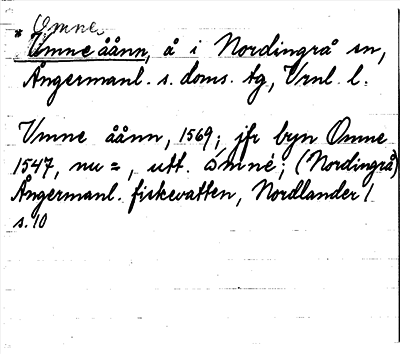 Omne
* Vmne åånn, å i Nordingrå sn,
Ångermanl. s. doms. tg, Vrnl. l.
Vmne åånn, 1569; jfr byn Omne
1547, nu =, utt. òmne; (Nordingrå)
Ångermanl. fiskevatten, Nordlander /.
s. 10